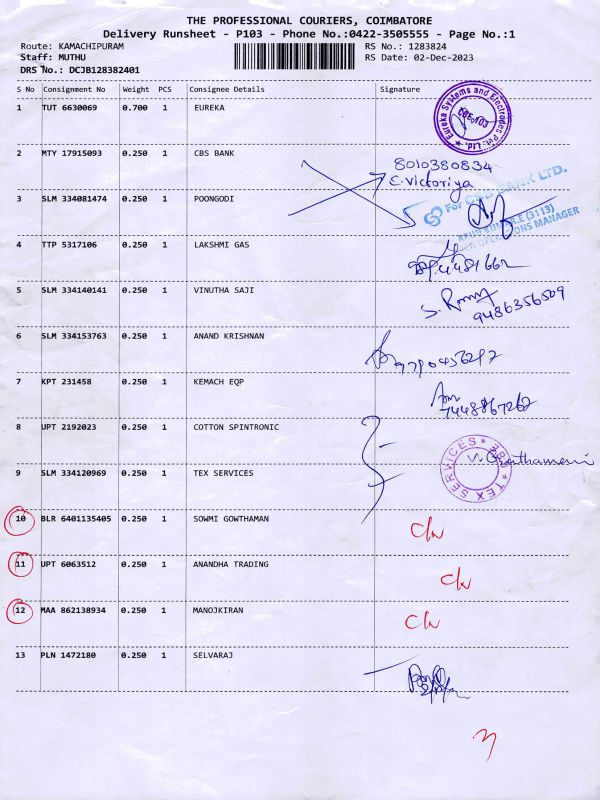 THE PROFESSIONAL COURIERS, COIMBATORE
Delivery Runsheet - P103 - Phone No.:0422-3505555 - Page No.:1
Route: KAMACHIPURAM RS No.: 1283824
Staff: MUTHU RS Date: 02-Dec-2023
DRS No.: DCJB128382401
S No Consignment No Weight PCS Consignee Details Signature
1 TUT 6630069 0.700 1 EUREKA
Eureka Systems and Electrodes Pvt. Ltd.
2 MTY 17915093 0.250 1 CBS BANK
8010380834
E. Victoriya
3 SLM 334081474 0.250 1 POONGODI
For CSB BANK LTD.
OPERATIONS MANAGER
4 TTP 5317106 0.250 1 LAKSHMI GAS
5 SLM 334140141 0.250 1 VINUTHA SAJI
9486356509
6 SLM 334153763 0.250 1 ANAND KRISHNAN
7 KPT 231458 0.250 1 KEMACH EQP
7448867262
8 UPT 2192023 0.250 1 COTTON SPINTRONIC
9 SLM 334120969 0.250 1 TEX SERVICES
TEX SERVICES
10 BLR 6401135405 0.250 1 SOWMI GOWTHAMAN
11 UPT 6063512 0.250 1 ANANDHA TRADING
12 MAA 862138934 0.250 1 MANOJKIRAN
13 PLN 1472180 0.250 1 SELVARAJ
3